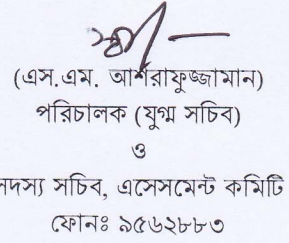 (এস.এম. আশরাফুজ্জামান)
পরিচালক (যুগ্ম সচিব)
ও
সদস্য সচিব, এসেসমেন্ট কমিটি
ফোনঃ ৯৫৬২৮৮৩